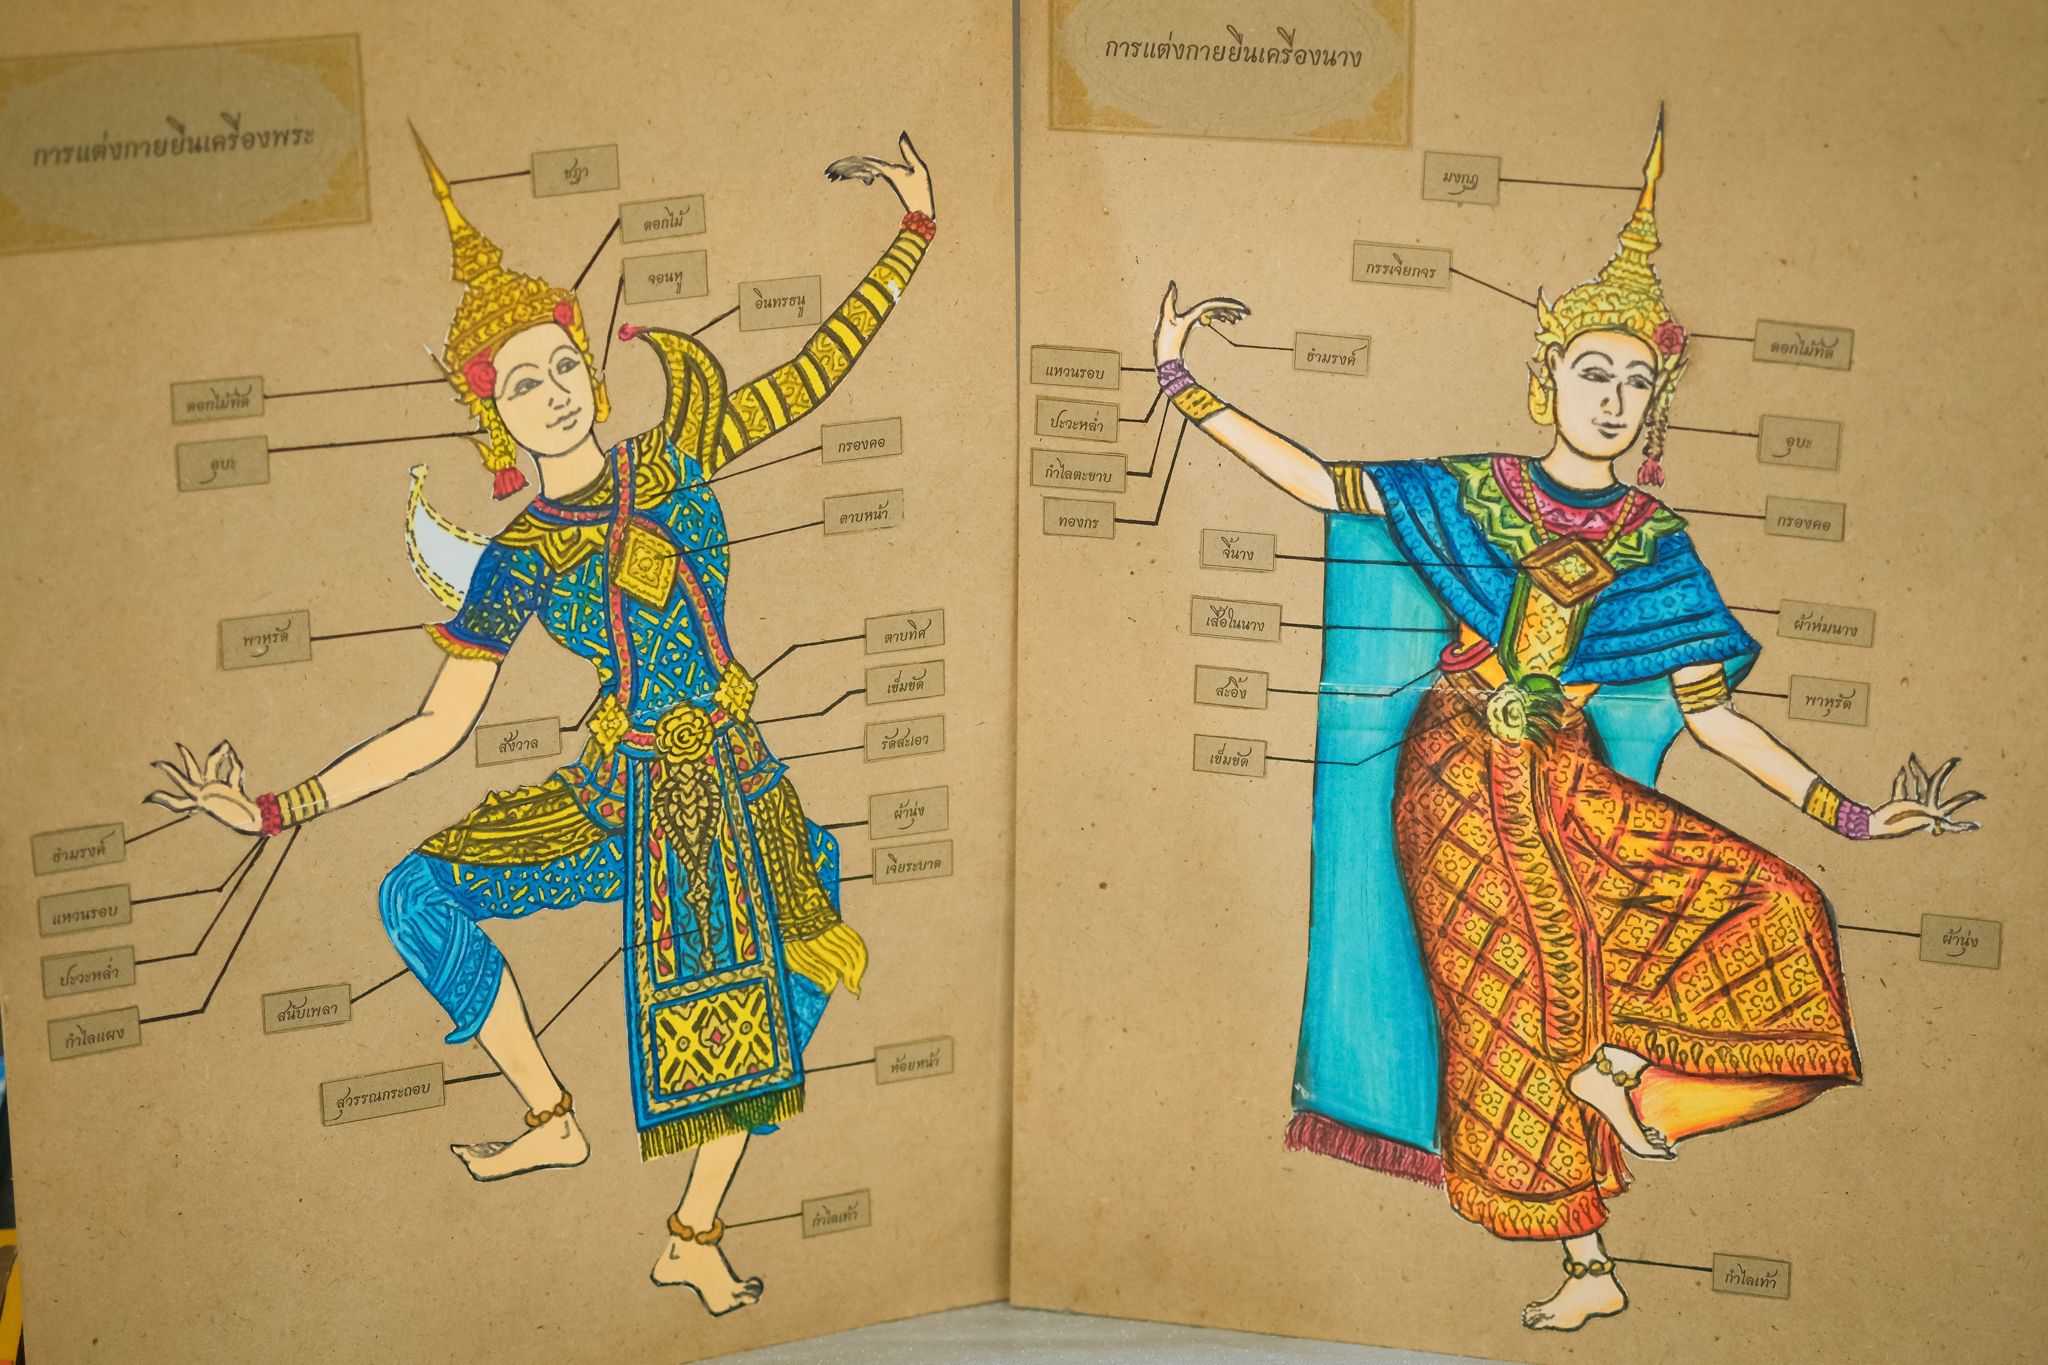 การแต่งกายยืนเครื่องพระ
ชฎา
ดอกไม้
จอนหู
อินทรธนู
ดอกไม้ทัด
อุบะ
กรองคอ
ตาบหน้า
พาหุรัด
ตาบทิศ
เข็มขัด
สังวาล
รัดสะเอว
ผ้านุ่ง
ธำมรงค์
เจียระบาด
แหวนรอบ
ปะวะหล่ำ
กำไลแผง
สนับเพลา
ห้อยหน้า
สุวรรณกระถอบ
กำไลเท้า
การแต่งกายยืนเครื่องนาง
มงกุฎ
กรรเจียกจร
ธำมรงค์
ดอกไม้ทัด
แหวนรอบ
ปะวะหล่ำ
อุบะ
กำไลตะขาบ
ทองกร
กรองคอ
จี้นาง
เสื้อในนาง
ผ้าห่มนาง
สะอิ้ง
พาหุรัด
เข็มขัด
ผ้านุ่ง
กำไลเท้า